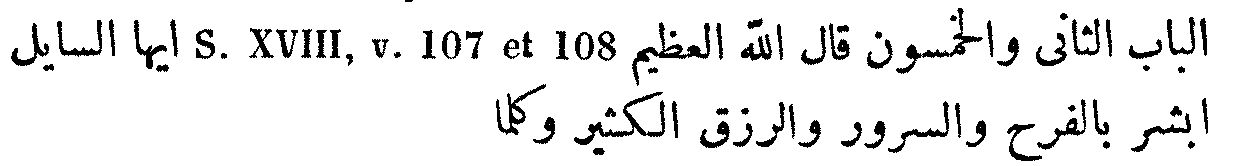 الباب الثانى والخمسون قال الله العظيم S. XVIII, v. 107 et 108 ايها السايل
ابشر بالفرح والسرور والرزق الكثير وكلما